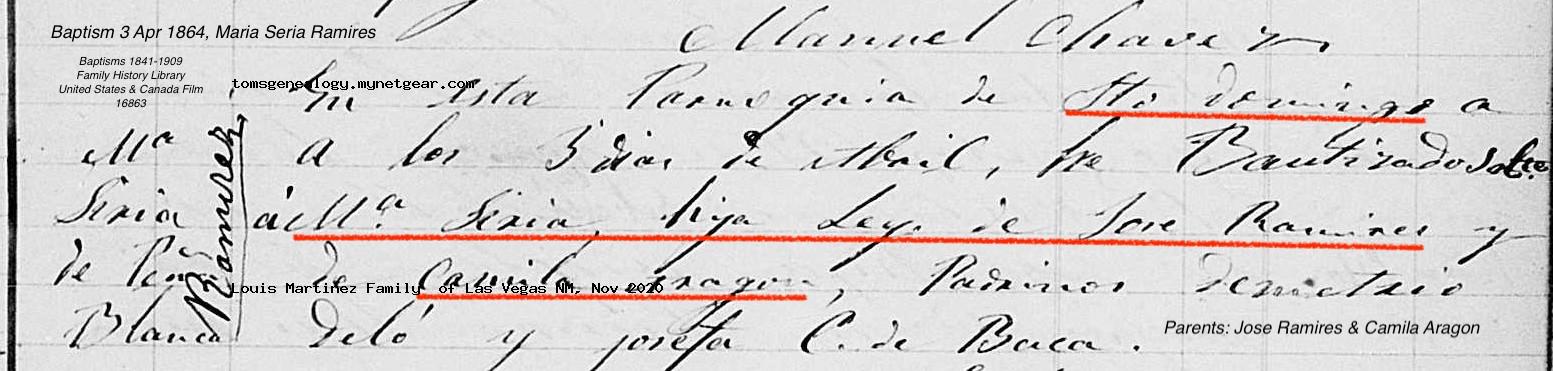 Baptism 3 Apr 1864, Maria Seria Ramires
Baptisms 1841-1909
Family History Library
United States & Canada Film
16863
tomsgenealogy.mynetgear.com
Manuel Chavez
En esta Parroquia de Sto domingo a
a los 3 dias de Abril, he Bautizado
á Ma. Seria, hija Ley. de Jose Ramires y
de Camila Aragon, Padrinos demetrio
y josefa C. de Baca.
Ma
Seria
de Peña
Blanca
Ramirez
Louis Martinez Family of Las Vegas NM, Nov 2020
Parents: Jose Ramires & Camila Aragon